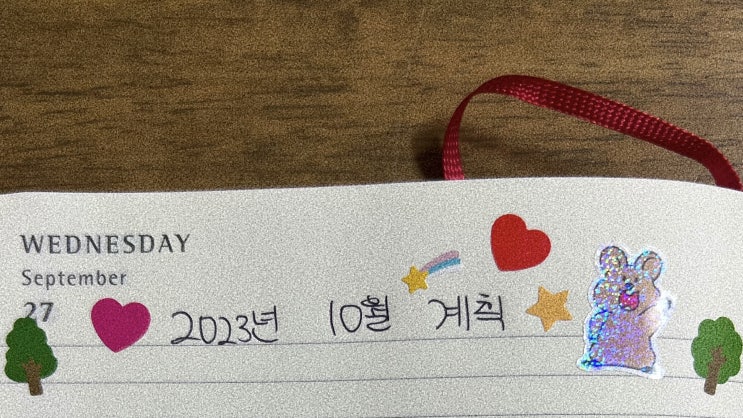 WEDNESDAY
September
27
2023년 10월 계획